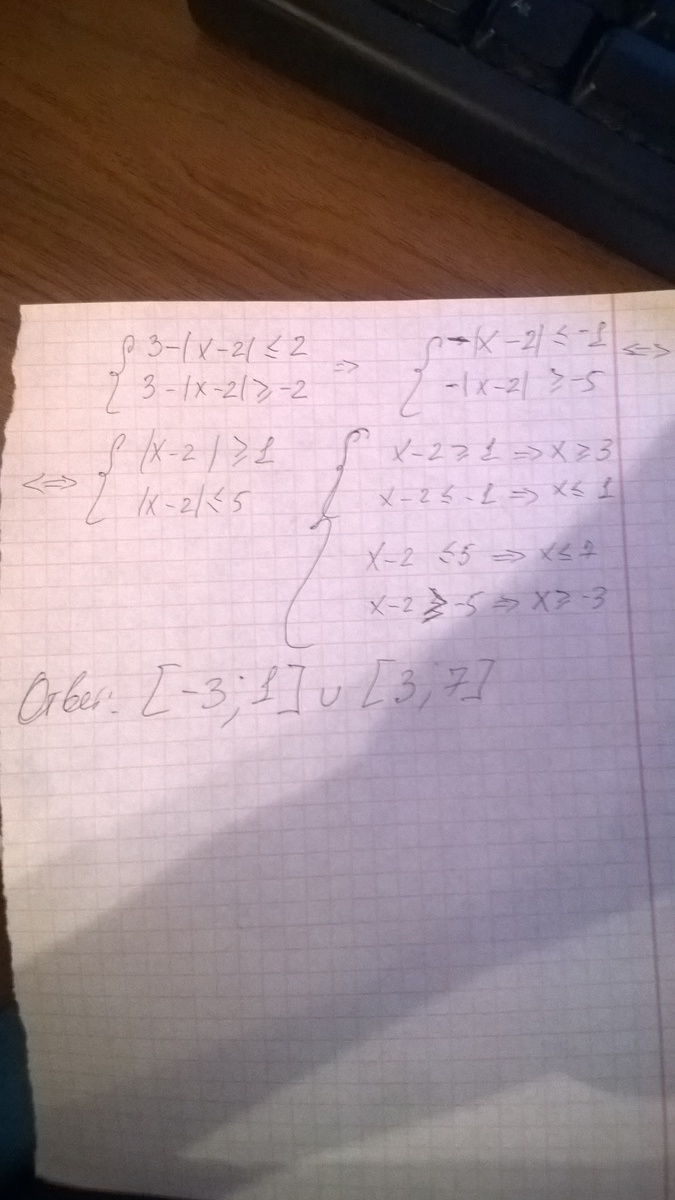 { 3-|x-2| ≤ 2 ⇒ { -|x-2| ≤ -1 ⇔
3-|x-2| ≥ -2 -|x-2| ≥ -5
⇔ { |x-2| ≥ 1 { x-2 ≥ 1 ⇒ x ≥ 3
|x-2| ≤ 5 x-2 ≤ -1 ⇒ x ≤ 1
x-2 ≤ 5 ⇒ x ≤ 7
x-2 ≥ -5 ⇒ x ≥ -3
Ответ: [-3; 1] ∪ [3; 7]